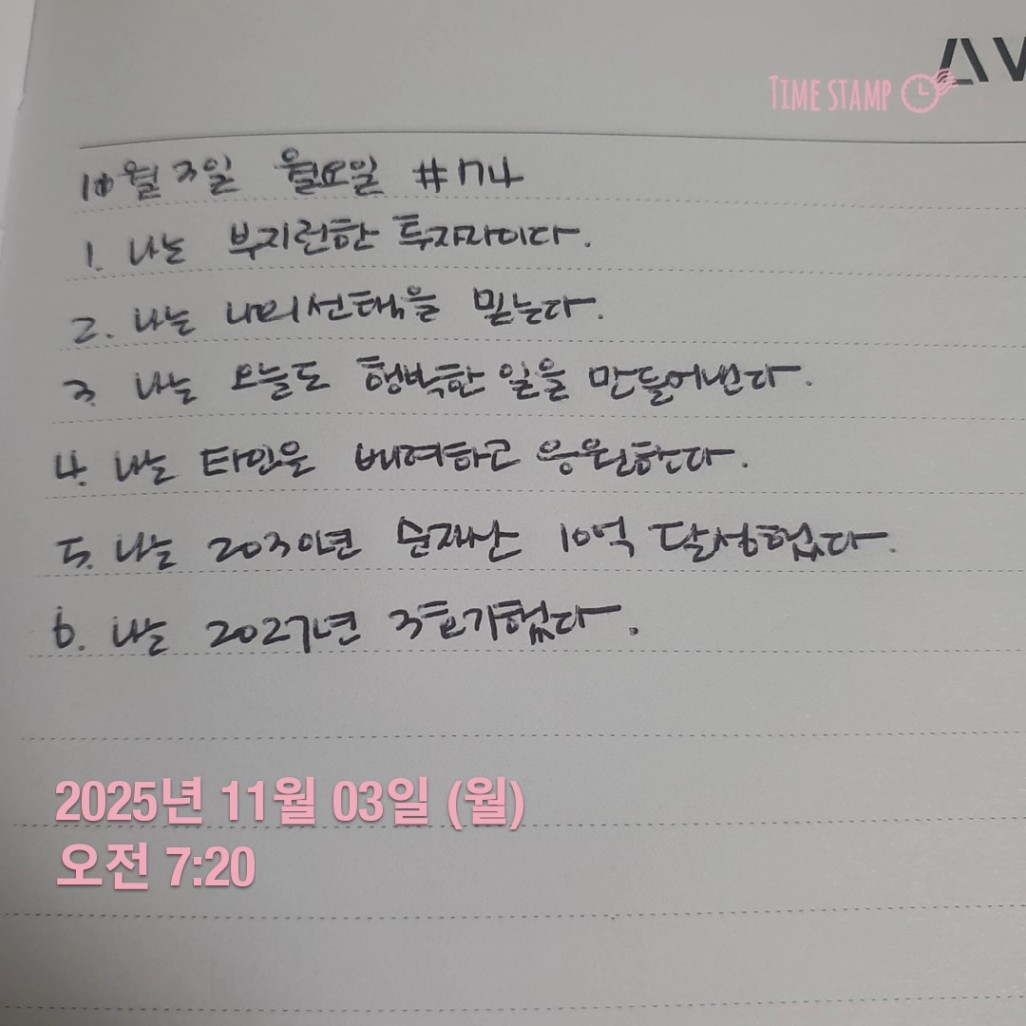 AV
TIME STAMP
11월 3일 월요일 #174
1. 나는 부지런한 투자자이다.
2. 나는 나의선택을 믿는다.
3. 나는 오늘도 행박한 일을 만들어낸다.
4. 나는 타인을 배려하고 응원한다.
5. 나는 2030년 순자산 10억 달성했다.
6. 나는 2027년 3호기했다.
2025년 11월 03일 (월)
오전 7:20